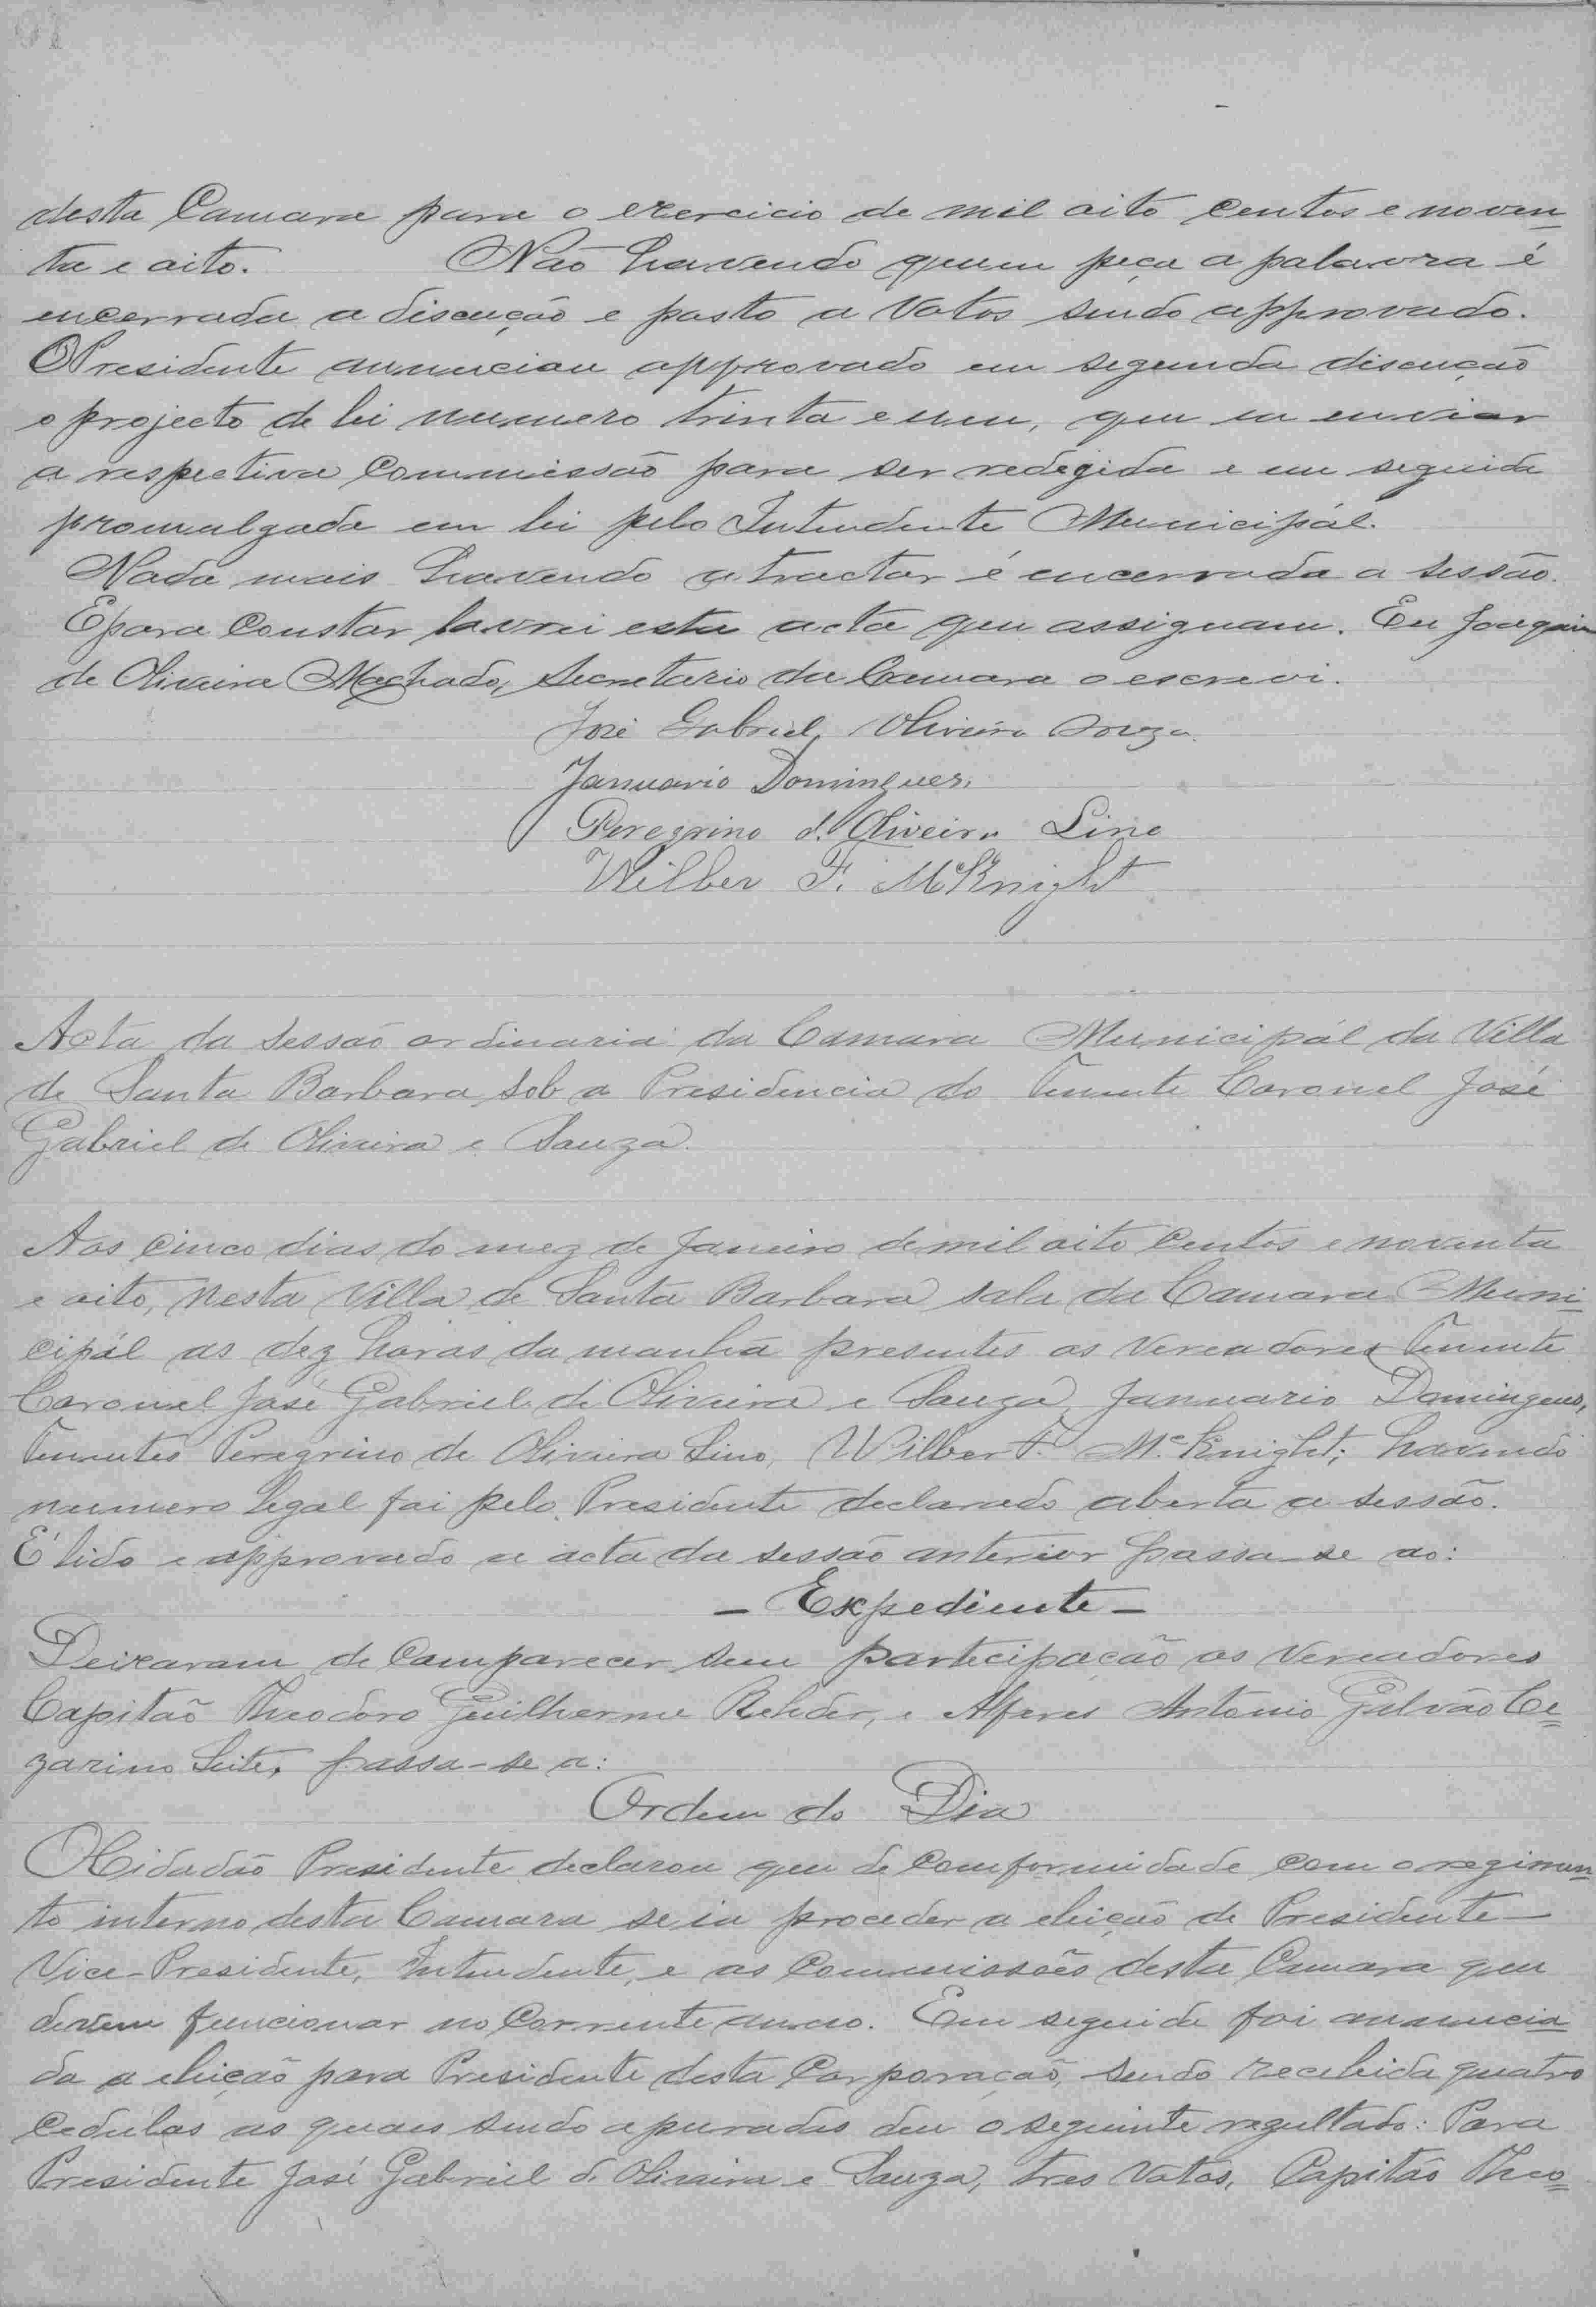 desta Camara para o exercicio de mil oito centos e noven
ta e oito. Não havendo quem peça a palavra é
encerrada a discução e posto a votos sendo approvado.
O Presidente annunciou approvado em segunda discução
o projecto de lei numero trinta e um, que vai enviar
a respectiva Commissão para ser redegida e em seguida
promulgada em lei pelo Intendente Municipál.
Nada mais havendo a tractar é encerrada a sessão.
E para Constar lavrei esta acta que assignam. Eu Joaquim
de Oliveira Machado, Secretario da Camara o escrevi.
José Gabriel Oliveira Souza
Januario Domingues
Peregrino d'Oliveira Lino
Wilber F. McKnight
Acta da Sessão ordinaria da Camara Municipál da Villa
de Santa Barbara, sob a Presidencia do Tenente Coronel José
Gabriel de Oliveira e Souza.
Aos cinco dias do mez de Janeiro de mil oito centos e noventa
e oito, nesta Villa de Santa Barbara sala da Camara Muni-
cipál as dez horas da manhã presentes os Vereadores Tenente
Coronel José Gabriel de Oliveira e Souza, Januario Domingues,
Tenentes Peregrino de Oliveira Lino, Wilber F. Mc Knight; havendo
numero legal foi pelo Presidente declarado aberta a sessão.
É lido e approvado a acta da sessão anterior passa-se ao:
- Expediente -
Deixaram de Comparecer sem participação os Vereadores
Capitão Theodoro Guilherme Rehder, e Alferes Antonio Galvão Ce=
zarino Leite, passa-se a:
Ordem do Dia
O Cidadão Presidente declarou que de Comformidade com o regimen
to interno desta Camara se ia proceder a eleição de Presidente
Vice-Presidente, Intendente, e as Commissões desta Camara que
devem funcionar no Corrente anno. Em seguida foi annuncia
da a eleição para Presidente desta Corporação, sendo recebida quatro
Cedulas as quaes sendo apuradas deu o seguinte rezultado: Para
Presidente José Gabriel de Oliveira e Souza, tres Votos, Capitão Theo=